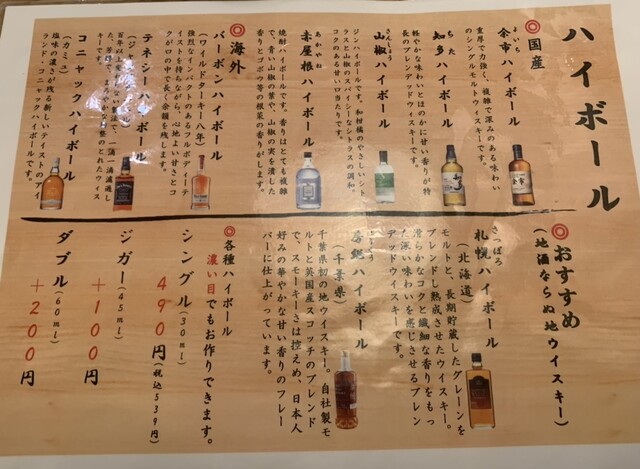 ハイボール
◎国産
よいち
余市ハイボール
重厚で力強く、複雑で深みのある味わい
のシングルモルトウイスキーです。
ちた
知多ハイボール
軽やかな味わいとほのかに甘い香りが特
長のブレンデッドウイスキーです。
さんしょう
山椒ハイボール
ジンハイボールです。和柑橘のやさしいシト
ラスと山椒のスパイシーなシトラスの調和。
コクのある甘い口当たりです。
あかやね
赤屋根ハイボール
焼酎ハイボールです。香りはとても複雑
で、青い山椒の葉や、山椒の実を潰した
香りとゴボウ等の根菜の香りがします。
◎海外
バーボンハイボール
(ワイルドターキー八年)
強烈なインパクトのあるフルボディーテ
イストを持ちながら、心地よい甘さとコ
クが口の中で長く余韻を残します。
テネシーハイボール
百年以上
一滴一滴濾過し
キーです。
コニャックハイボール
(カミュ)
塩味の濃さが残る新しいテイストのアイ
ランド・コニャックハイボールです。
◎おすすめ
(地酒ならぬ地ウイスキー)
さっぽろ
札幌ハイボール
(北海道)
モルトと、長期貯蔵したグレーンを
ブレンドし熟成させたウイスキー。
滑らかなコクと繊細な香りをもっ
た深い味わいを感じさせるブレン
デッドウイスキーです。
房総ハイボール
(千葉県)
千葉県初の地ウイスキー。自社製モ
ルトと英国産スコッチのブレンド
で、スモーキーさは控えめ、日本人
好みの華やかな甘い香りのフレー
バーに仕上がっています。
◎各種ハイボール
濃い目でもお作りできます。
シングル(30ml)
490円(税込539円)
ジガー(45ml)
+100円
ダブル(60ml)
+200円